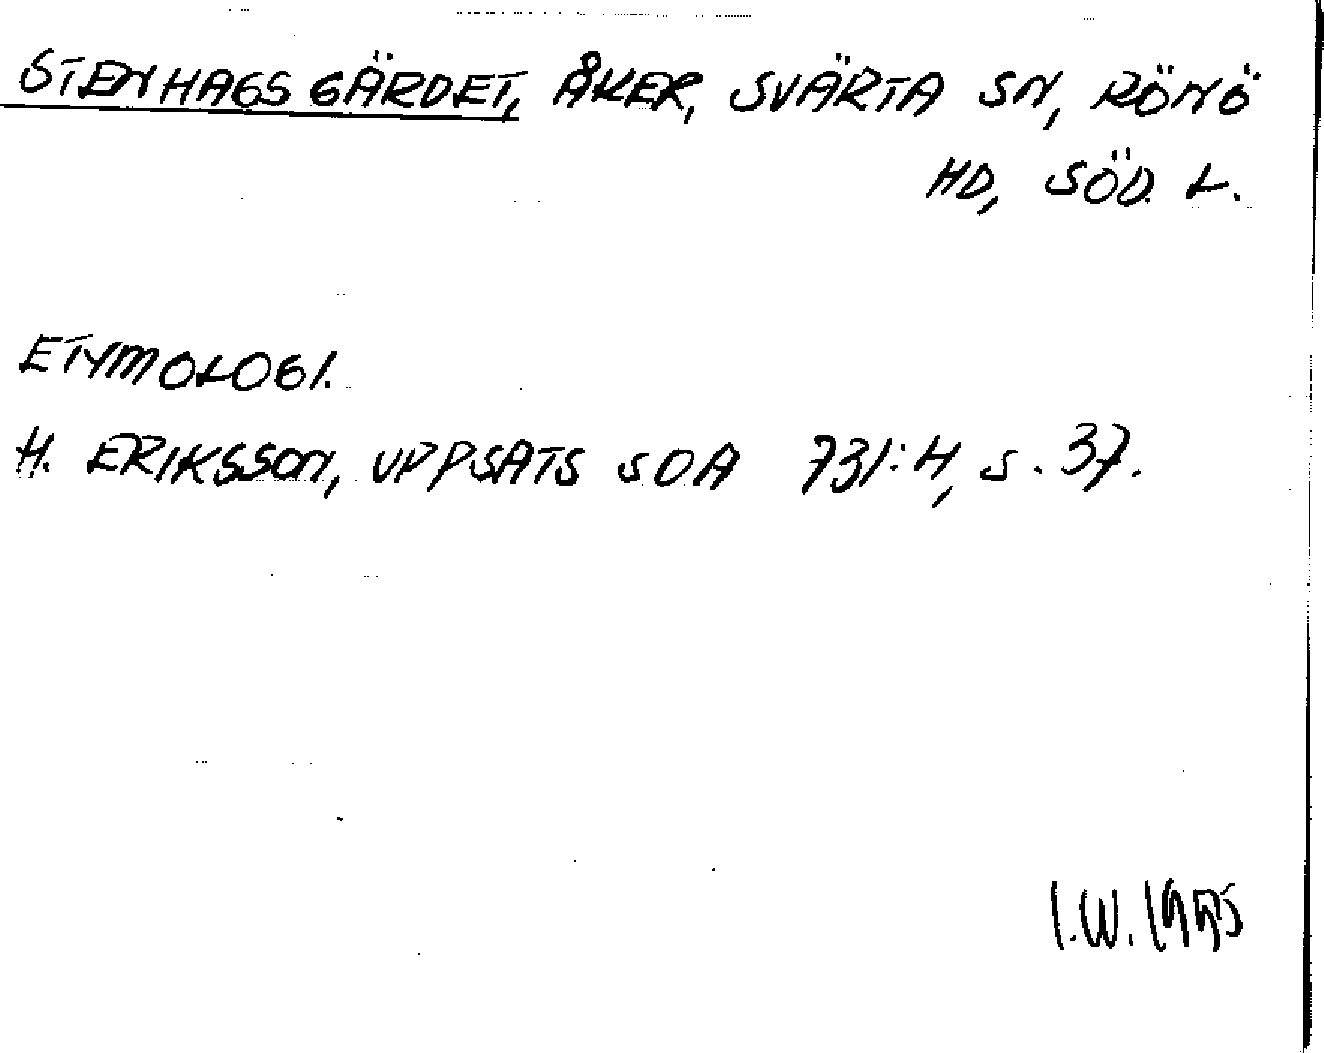 STENHAGSGÄRDET, ÅKER, SVÄRTA SN, RÖNÖ
HD, SÖD. L.
ETYMOLOGI.
H. ERIKSSON, UPPSATS SOA 731:H, s. 37.
I.W. 1995